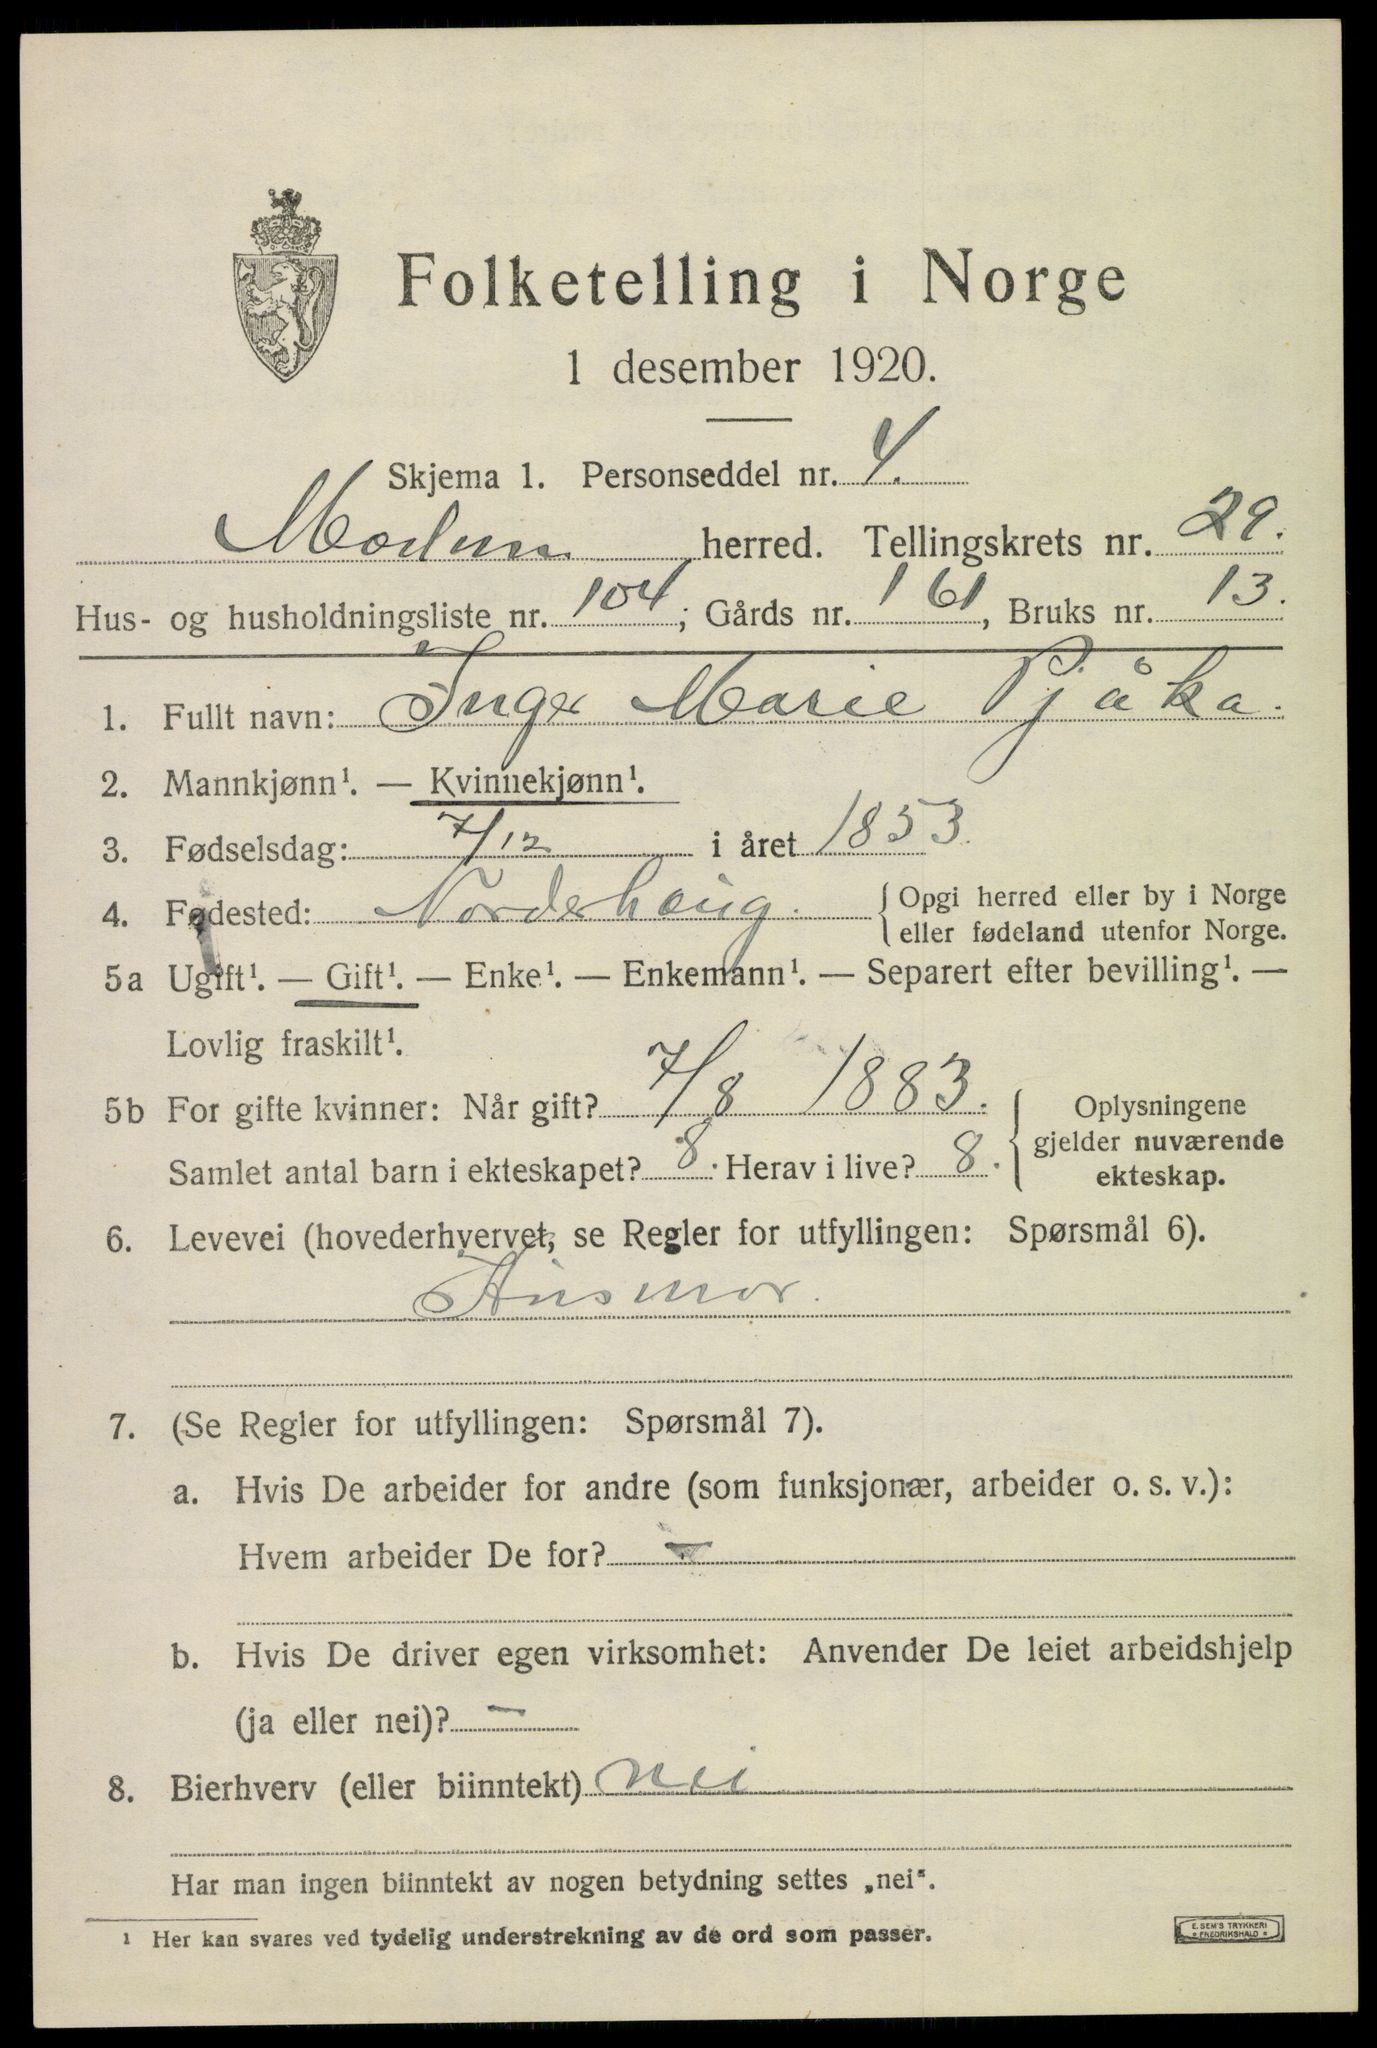 Folketelling i Norge
1 desember 1920.
Skjema 1. Personseddel nr. 4.
Modum herred. Tellingskrets nr. 29.
Hus- og husholdningsliste nr. 104; Gårds nr. 161, Bruks nr. 13.
1. Fullt navn: Inger Marie Pjåka.
2. Mannkjønn¹. — Kvinnekjønn¹.
3. Fødselsdag: 7/12 i året 1853.
4. Fødested: Norderhaug. {Opgi herred eller by i Norge
eller fødeland utenfor Norge.
5a Ugift¹. — Gift¹. — Enke¹. — Enkemann¹. — Separert efter bevilling¹. —
Lovlig fraskilt¹.
5b For gifte kvinner: Når gift? 7/8 1883. { Oplysningene
gjelder nuværende
Samlet antal barn i ekteskapet? 8. Herav i live? 8. ekteskap.
6. Levevei (hovederhvervet, se Regler for utfyllingen: Spørsmål 6).
Husmor.
7. (Se Regler for utfyllingen: Spørsmål 7).
a. Hvis De arbeider for andre (som funksjonær, arbeider o. s. v.):
Hvem arbeider De for? —
b. Hvis De driver egen virksomhet: Anvender De leiet arbeidshjelp
(ja eller nei)? —
8. Bierhverv (eller biinntekt) nei
Har man ingen biinntekt av nogen betydning settes „nei".
¹ Her kan svares ved tydelig understrekning av de ord som passer.
E. SEM'S TRYKKERI
* FREDRIKSHALD *